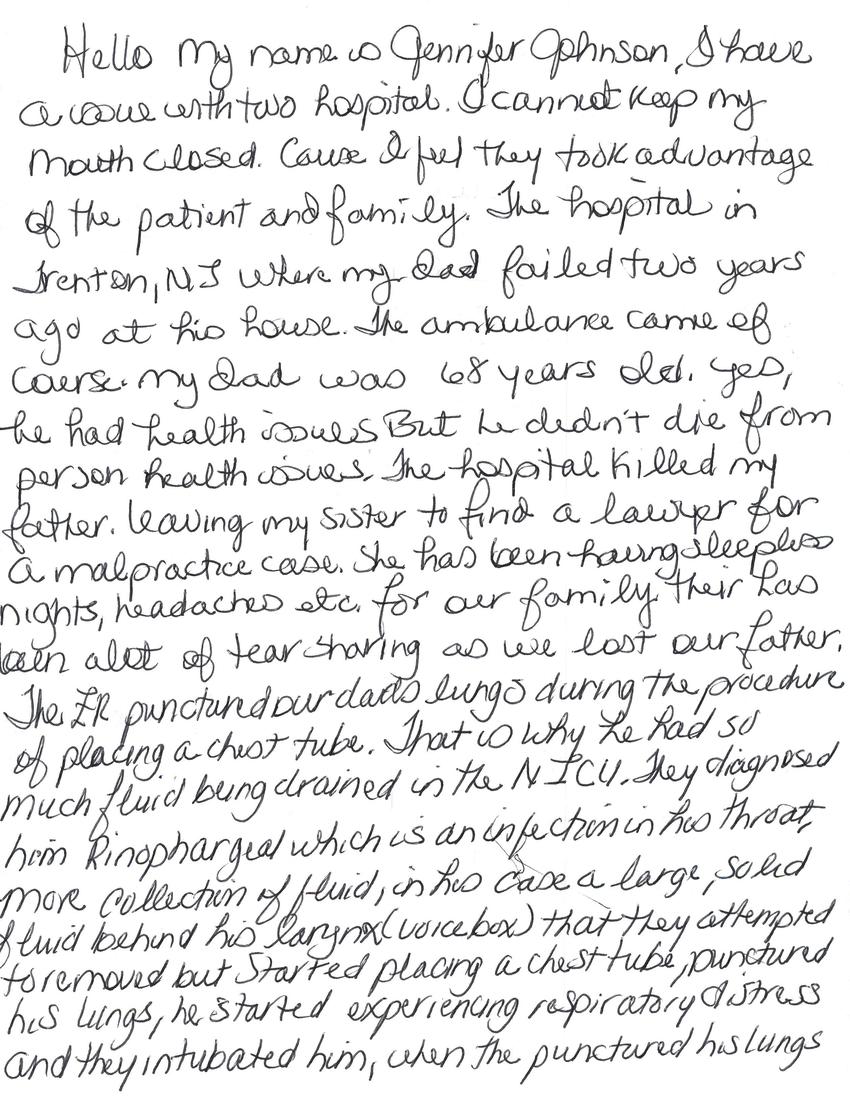 Hello my name is Jennifer Johnson, I have
a issue with two hospital. I cannot keep my
mouth closed. Cause I feel they took advantage
of the patient and family. The hospital in
Trenton, NJ where my dad failed two years
ago at his house. The ambulance came of
course. my dad was 68 years old. yes,
he had health issues But he dedn't die from
person health issues. The hospital killed my
father. leaving my sister to find a lawyer for
a malpractice case. She has been having sleepless
nights, headaches etc. for our family. their has
been alot of tear sharing as we lost our father.
The ER punctured our dad's lungs during the procedure
of placing a chest tube. That is why he had so
much fluid being drained in the NICU. They diagnosed
him Rinophargeal which is an infection in his throat,
more collection of fluid, in his case a large, solid
fluid behind his larynx (voice box) that they attempted
to removed but started placing a chest tube, punctured
his lungs, he started experiencing respiratory distress
and they intubated him, when the punctured his lungs